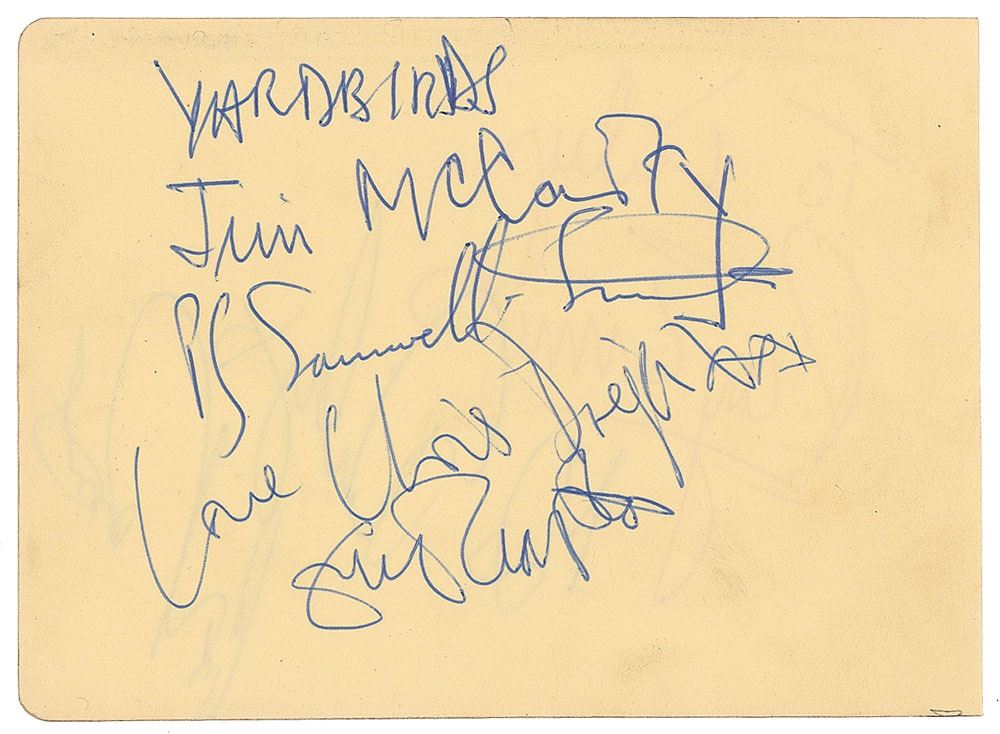 YARDBIRDS
Jim McCarty
PS Samwell-Smith
Love Chris Dreja xxx
Eric Clapton